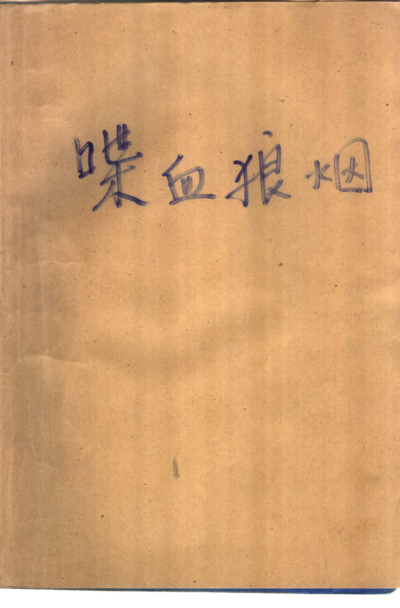 喋血狼烟